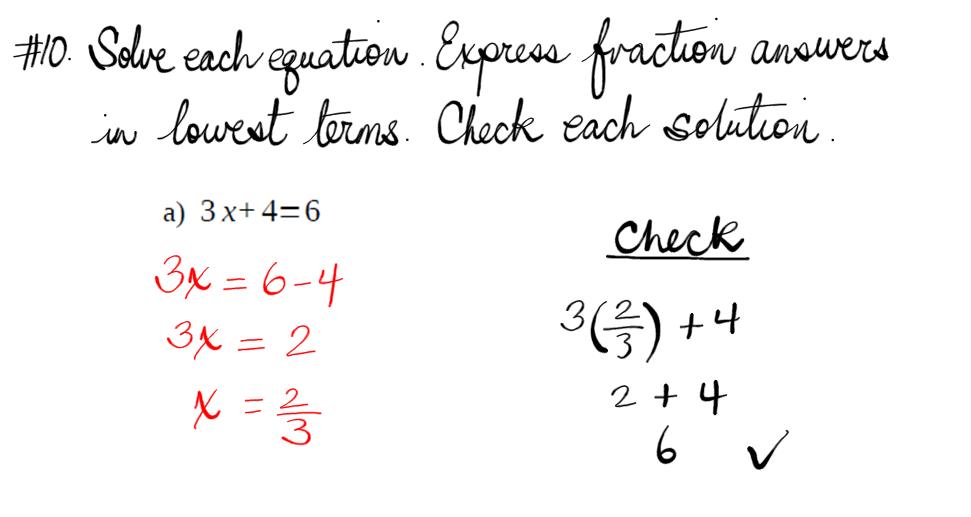 #10. Solve each equation. Express fraction answers
in lowest terms. Check each solution.
a) 3x+4=6
3x = 6-4
3x = 2
x = 2/3
Check
3(2/3) + 4
2 + 4
6 ✓